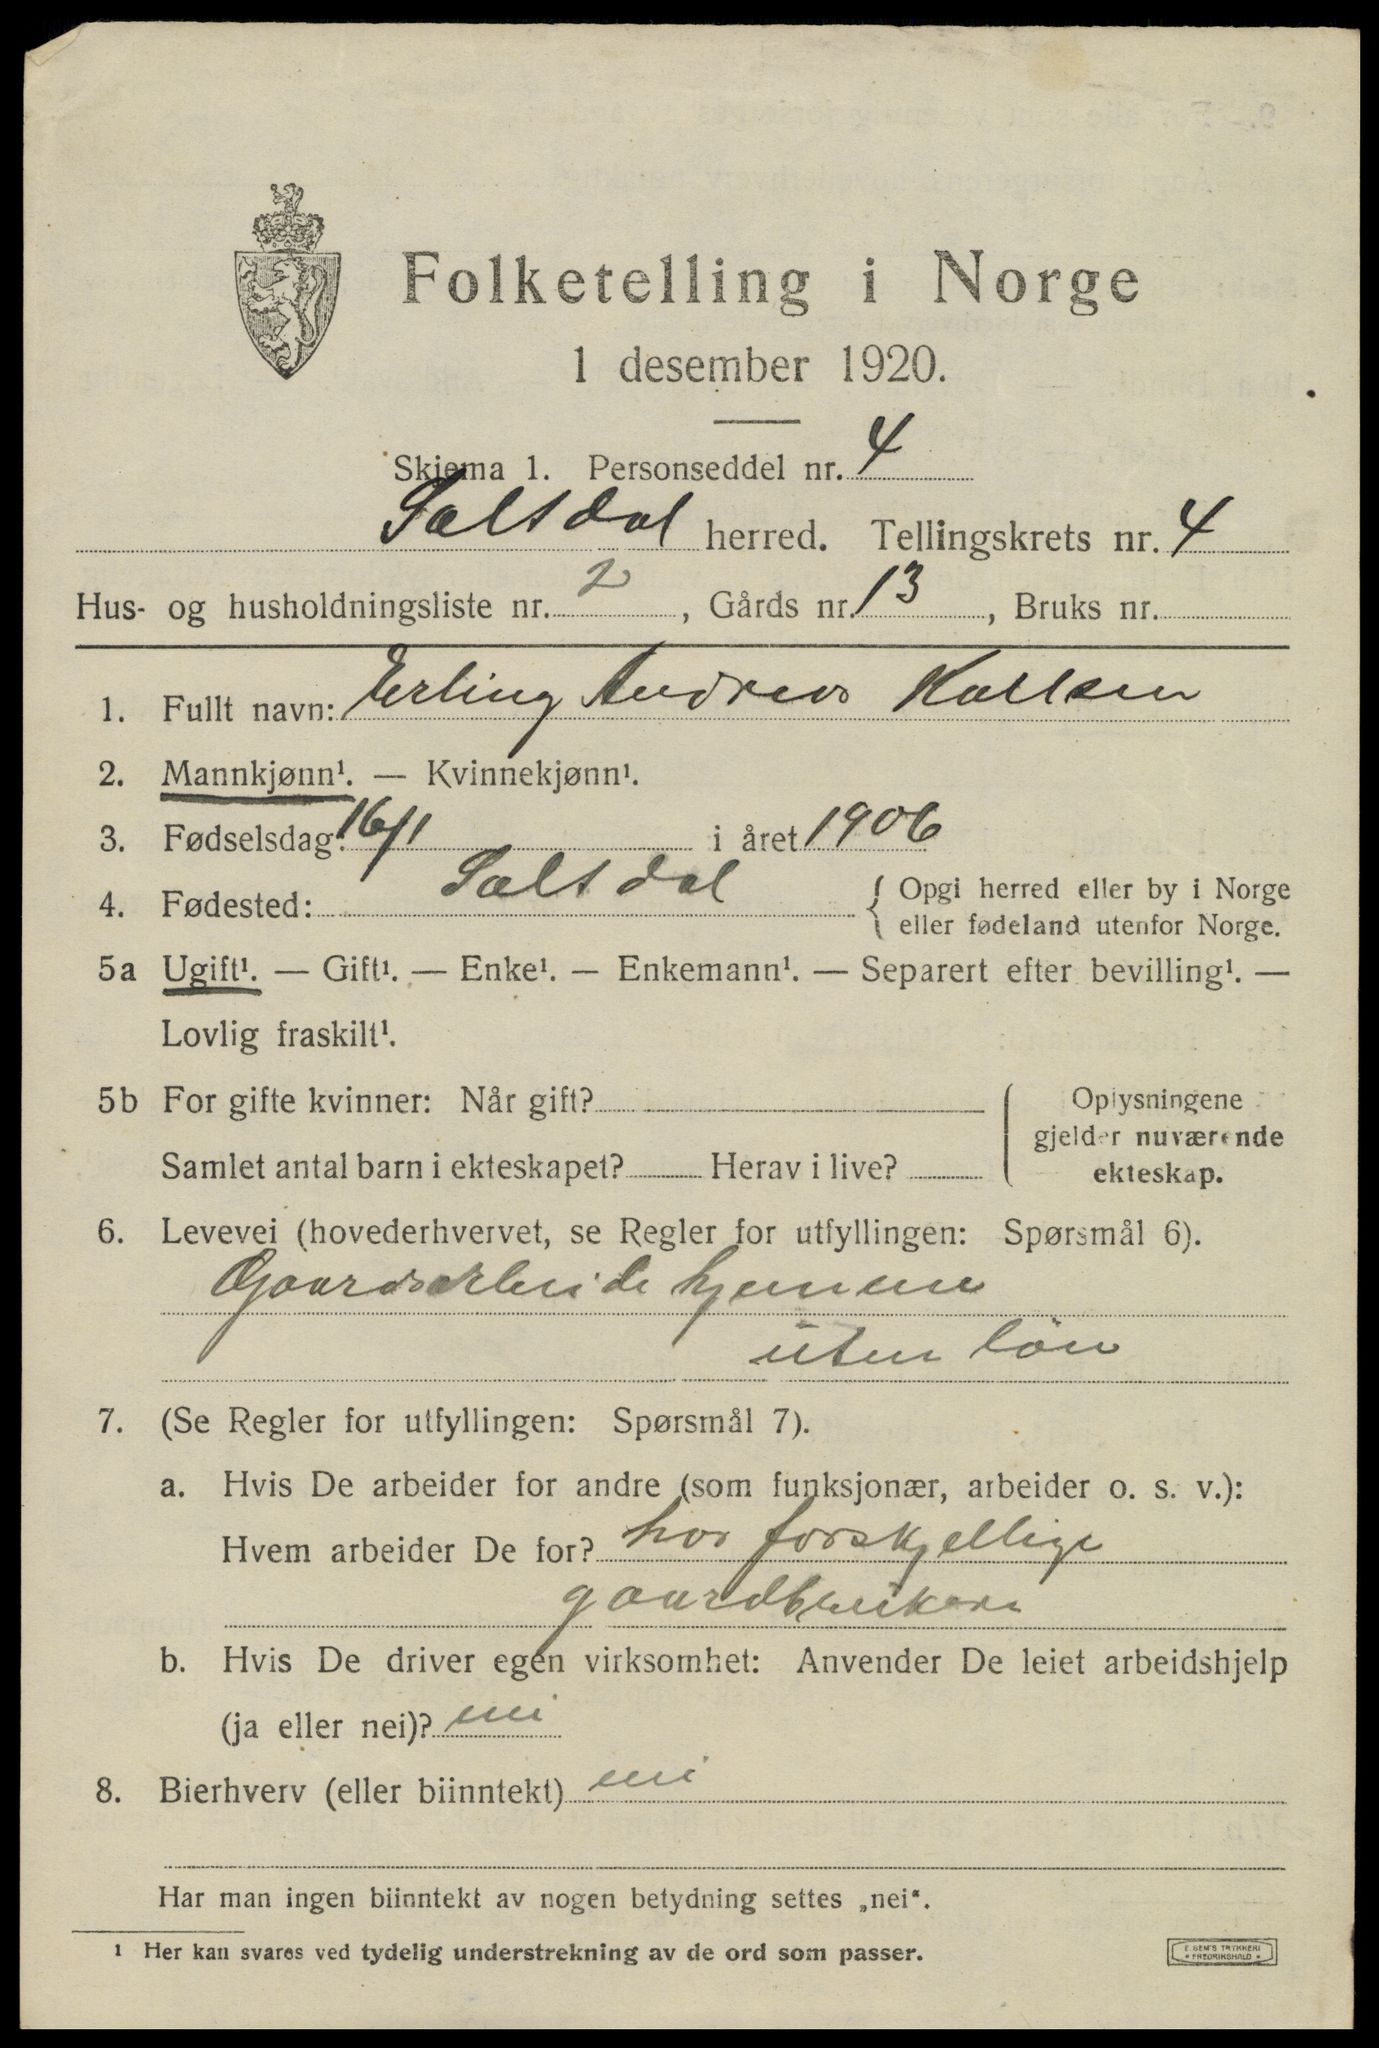 Folketelling i Norge
1 desember 1920.
Skjema 1. Personseddel nr. 4
Saltdal herred. Tellingskrets nr. 4
Hus- og husholdningsliste nr. 2, Gårds nr. 13, Bruks nr.
1. Fullt navn: Erling Andreas Karlsen
2. Mannkjønn¹. — Kvinnekjønn¹.
3. Fødselsdag: 16/1 i året 1906
4. Fødested: Saltdal { Opgi herred eller by i Norge
eller fødeland utenfor Norge.
5a Ugift¹. — Gift¹. — Enke¹. — Enkemann¹. — Separert efter bevilling¹. —
Lovlig fraskilt¹.
5b For gifte kvinner: Når gift? Oplysningene
gjelder nuværende
Samlet antal barn i ekteskapet? Herav i live? ekteskap.
6. Levevei (hovederhvervet, se Regler for utfyllingen: Spørsmål 6).
Gaardsarbeide hjemme
uten løn
7. (Se Regler for utfyllingen: Spørsmål 7).
a. Hvis De arbeider for andre (som funksjonær, arbeider o. s. v.):
Hvem arbeider De for? hos forskjellige
gaardbrukere
b. Hvis De driver egen virksomhet: Anvender De leiet arbeidshjelp
(ja eller nei)? nei
8. Bierhverv (eller biinntekt) nei
Har man ingen biinntekt av nogen betydning settes „nei“.
¹ Her kan svares ved tydelig understrekning av de ord som passer.
E. SEM'S TRYKKERI
* FREDRIKSHALD *